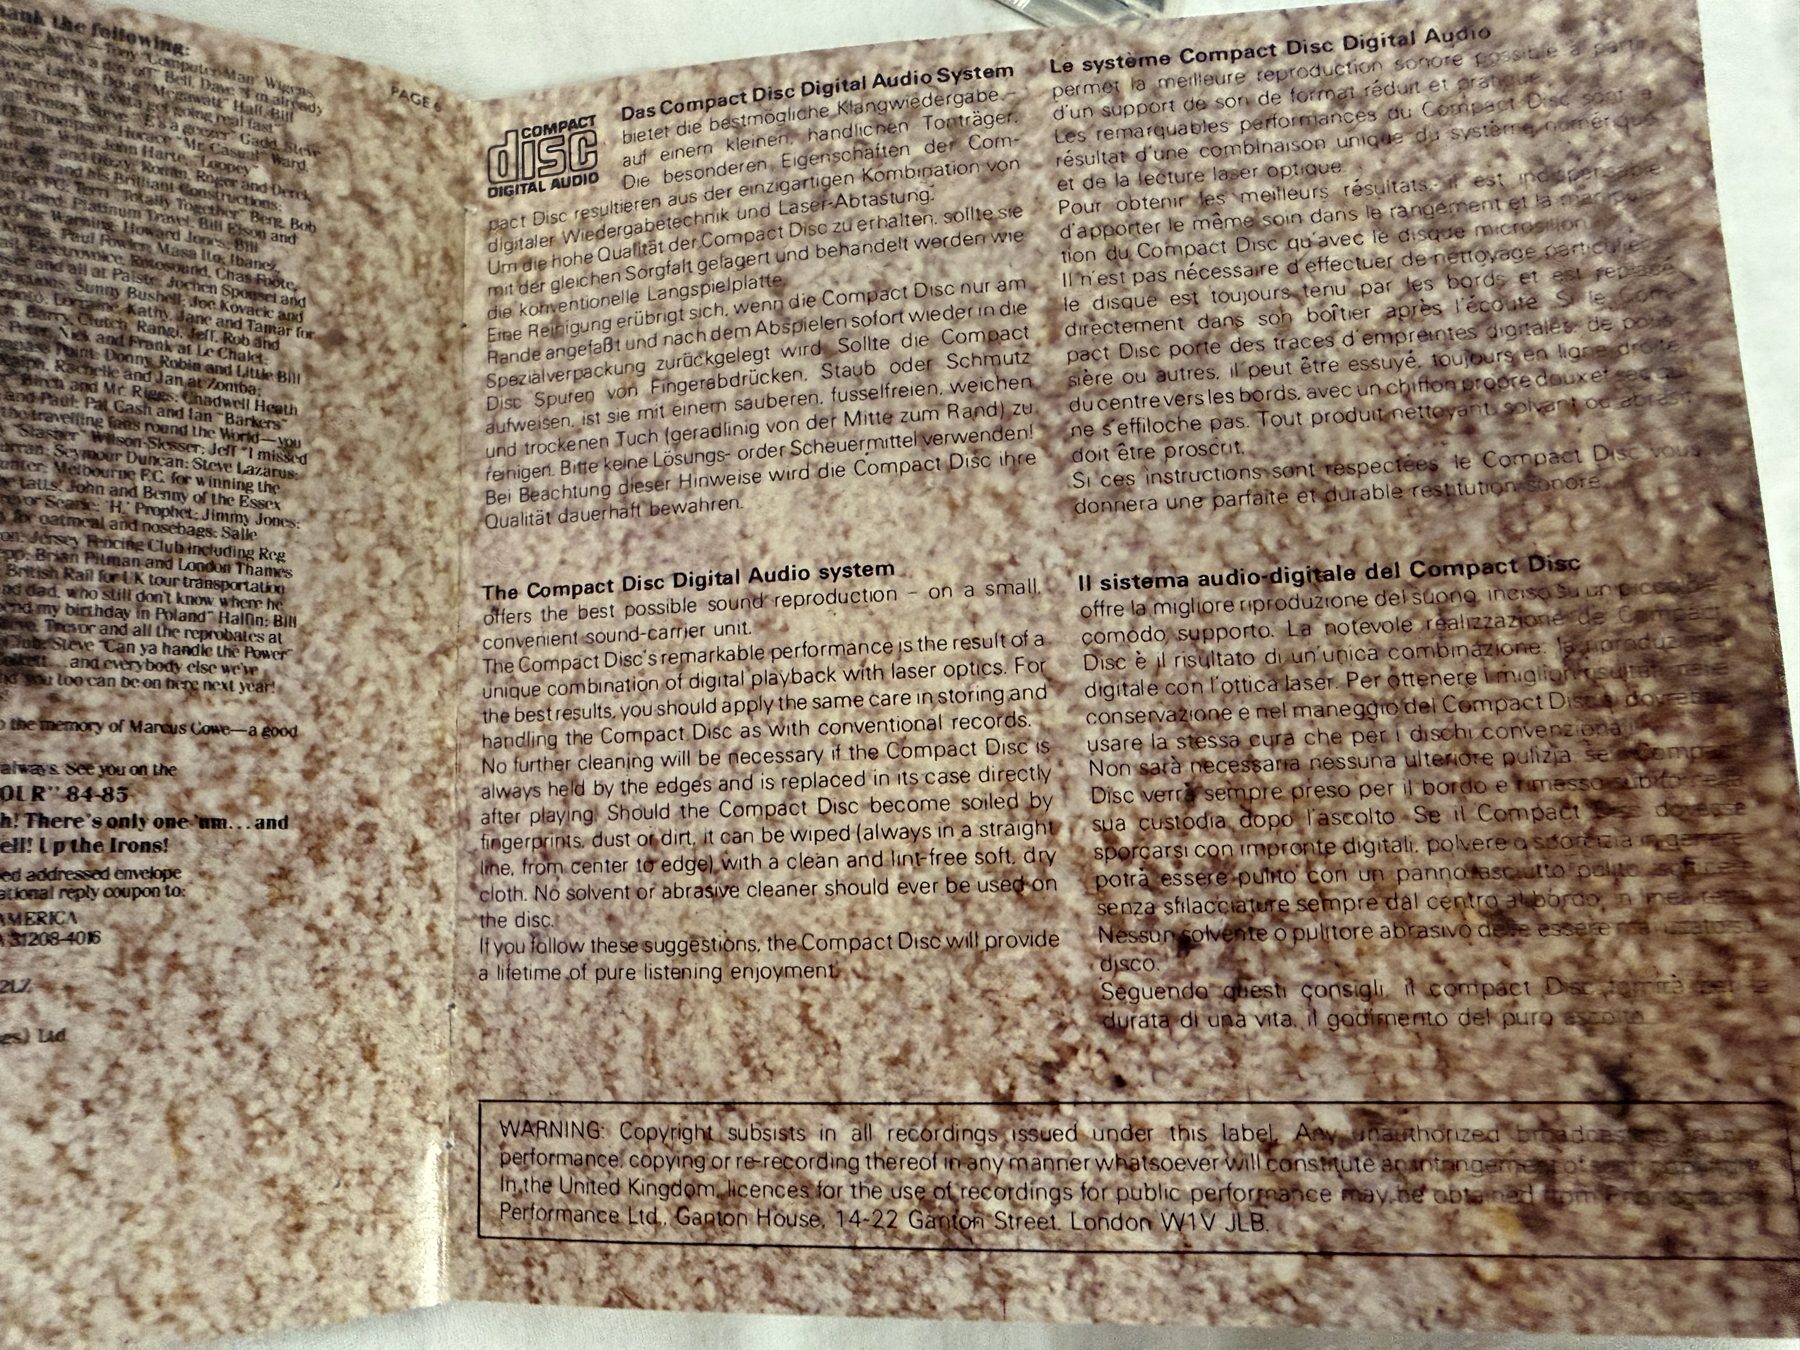 thank the following:
Tony "Computer Man" Wiggins,
day off" Bell, Dave "I'm already
Lights, Doug "Megawatt" Hall, Bill
Warren "I've gotta get going real fast"
Kenney, Steve "E's a geezer" Gadd, Steve
Thompson, Horace "Mr Casual" Ward,
John Harte, "Loopey"
and Dozy Roman, Roger and Derek,
and his Brilliant Constructions;
Terri "Totally Together" Berg, Bob
Laird, Platinum Travel, Bill Elson and
Warning, Howard Jones, Bill
Paul Fowler, Masa Ito, Ibanez,
Rotosound, Chas Foote,
and all at Paiste; Jochen Sponsel and
Sunny Bushell, Joe Kovacic and
Lorraine, Kathy, Jane and Tamar for
Barry, Clutch, Rangi, Jeff, Rob and
Peter, Nick and Frank at Le Chalet;
Point; Donny, Robin and Little Bill
Ralph, Rachelle and Jan at Zomba;
Birch and Mr. Riggs; Chadwell Heath
and Paul; Pat Cash and Ian "Barkers"
the travelling fans round the World—you
Wilson-Slesser; Jeff "I missed
Seymour Duncan; Steve Lazarus;
Melbourne F.C. for winning the
tatts! John and Benny of the Essex
Trevor Searle; "H," Prophet; Jimmy Jones;
for oatmeal and nosebags; Salle
Jersey Fencing Club including Reg
Brian Pitman and London Thames
British Rail for UK tour transportation
and dad, who still don't know where he
my birthday in Poland" Halfin; Bill
Trevor and all the reprobates at
Club; Steve "Can ya handle the Power"
... and everybody else we've
and you too can be on here next year!
to the memory of Marcus Cowe—a good
always. See you on the
TOUR" 84-85
There's only one 'um... and
Up the Irons!
addressed envelope
reply coupon to:
AMERICA
31208-4016
2LZ
Ltd
PAGE 6
COMPACT
disc
DIGITAL AUDIO
Das Compact Disc Digital Audio System
bietet die bestmögliche Klangwiedergabe –
auf einem kleinen, handlichen Tonträger.
Die besonderen Eigenschaften der Com-
pact Disc resultieren aus der einzigartigen Kombination von
digitaler Wiedergabetechnik und Laser-Abtastung.
Um die hohe Qualität der Compact Disc zu erhalten, sollte sie
mit der gleichen Sorgfalt gelagert und behandelt werden wie
die konventionelle Langspielplatte.
Eine Reinigung erübrigt sich, wenn die Compact Disc nur am
Rande angefaßt und nach dem Abspielen sofort wieder in die
Spezialverpackung zurückgelegt wird. Sollte die Compact
Disc Spuren von Fingerabdrücken, Staub oder Schmutz
aufweisen, ist sie mit einem sauberen, fusselfreien, weichen
und trockenen Tuch (geradlinig von der Mitte zum Rand) zu
reinigen. Bitte keine Lösungs- order Scheuermittel verwenden!
Bei Beachtung dieser Hinweise wird die Compact Disc ihre
Qualität dauerhaft bewahren.
The Compact Disc Digital Audio system
offers the best possible sound reproduction – on a small,
convenient sound-carrier unit.
The Compact Disc's remarkable performance is the result of a
unique combination of digital playback with laser optics. For
the best results, you should apply the same care in storing and
handling the Compact Disc as with conventional records.
No further cleaning will be necessary if the Compact Disc is
always held by the edges and is replaced in its case directly
after playing. Should the Compact Disc become soiled by
fingerprints, dust or dirt, it can be wiped (always in a straight
line, from center to edge) with a clean and lint-free soft, dry
cloth. No solvent or abrasive cleaner should ever be used on
the disc.
If you follow these suggestions, the Compact Disc will provide
a lifetime of pure listening enjoyment.
Le système Compact Disc Digital Audio
permet la meilleure reproduction sonore possible à partir
d'un support de son de format réduit et pratique.
Les remarquables performances du Compact Disc sont le
résultat d'une combinaison unique du système numérique
et de la lecture laser optique.
Pour obtenir les meilleurs résultats, il est indispensable
d'apporter le même soin dans le rangement et la manipula-
tion du Compact Disc qu'avec le disque microsillon.
Il n'est pas nécessaire d'effectuer de nettoyage particulier si
le disque est toujours tenu par les bords et est replacé
directement dans son boîtier après l'écoute. Si le Com-
pact Disc porte des traces d'empreintes digitales, de pous-
sière ou autres, il peut être essuyé, toujours en ligne droite,
du centre vers les bords, avec un chiffon propre doux et sec qui
ne s'effiloche pas. Tout produit nettoyant, solvant ou abrasif
doit être proscrit.
Si ces instructions sont respectées, le Compact Disc vous
donnera une parfaite et durable restitution sonore.
Il sistema audio-digitale del Compact Disc
offre la migliore riproduzione del suono, inciso su un piccolo e
comodo supporto. La notevole realizzazione de Compact
Disc è il risultato di un'unica combinazione: la riproduzione
digitale con l'ottica laser. Per ottenere i migliori risultati nella
conservazione e nel maneggio del Compact Disc si dovrebbe
usare la stessa cura che per i dischi convenzionali.
Non sarà necessaria nessuna ulteriore pulizia se il Compact
Disc verrà sempre preso per il bordo e rimesso subito nella
sua custodia dopo l'ascolto. Se il Compact Disc dovesse
sporcarsi con impronte digitali, polvere o sporcizia in genere
potrà essere pulito con un panno asciutto pulito, soffice e
senza sfilacciature sempre dal centro al bordo, in linea retta.
Nessun solvente o pulitore abrasivo deve essere mai usato sul
disco.
Seguendo questi consigli, il compact Disc fornirà per la
durata di una vita, il godimento del puro ascolto.
WARNING: Copyright subsists in all recordings issued under this label. Any unauthorized broadcasting,
performance, copying or re-recording thereof in any manner whatsoever will constitute an infringement of
In the United Kingdom, licences for the use of recordings for public performance may be obtained from Phonographic
Performance Ltd., Ganton House, 14-22 Ganton Street, London W1V JLB.